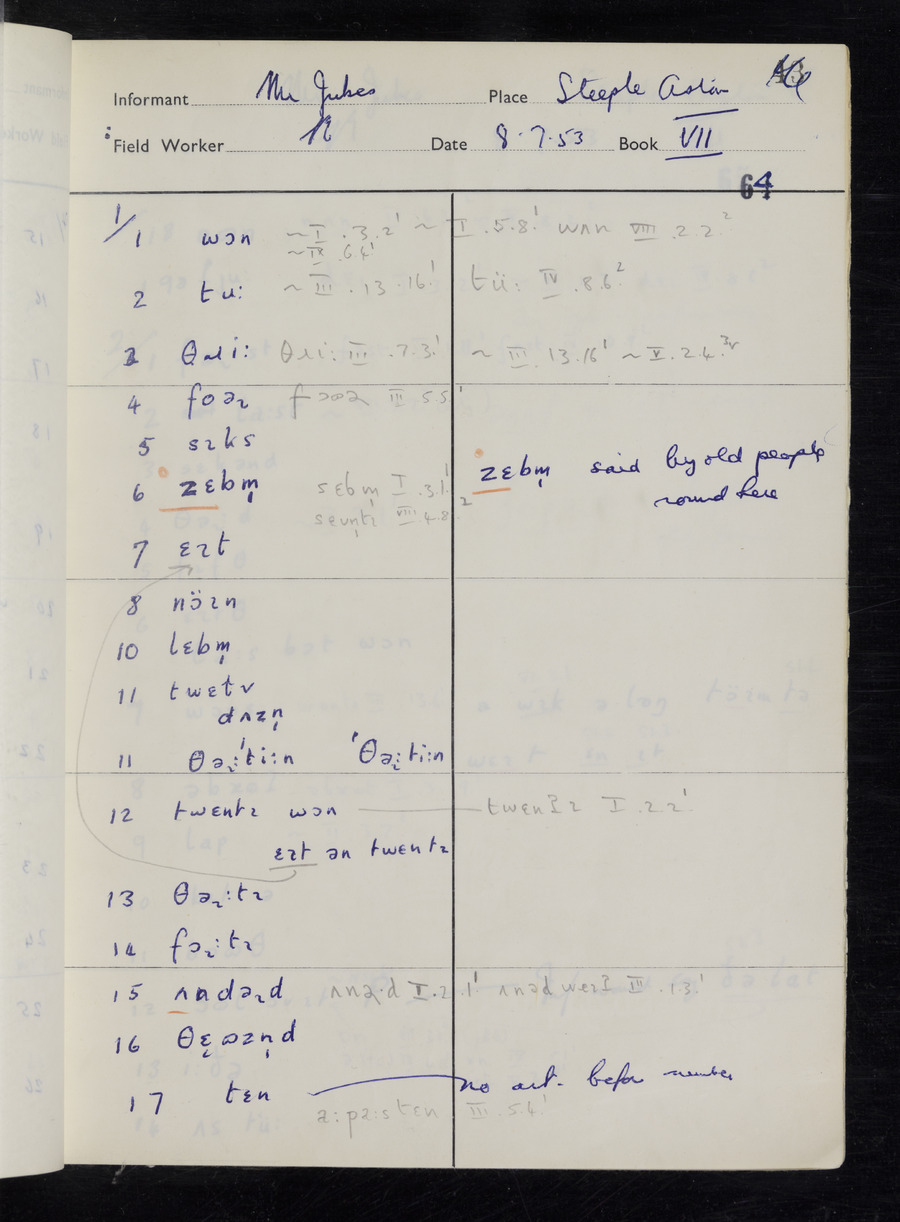 Informant Mr Jukes Place Steeple Aston
Field Worker R Date 8.7.53 Book VII
64
1/1 wɔn ~ I .3.2¹ ~ I .5.8¹ wʌn VIII .2.2²
~ IX .6.4¹
2 tu: ~ III .13.16¹ tü: IV .8.6²
3 θɹi: θɹi: III .7.3¹ ~ III .13.16¹ ~ V .2.4
4 foəɻ III 5.5¹
5 sɪks
6 zɛbm̩ sɛbm̩ I .3.1¹ zɛbm̩ said by old people
seventɪ VIII .4.8² round here
7 ɛɪt
8 nöɪn
10 lɛbm̩
11 twɛlv
dʌzn̩
11 θəɻ:ˈti:n ˈθəɻ:ti:n
12 twɛntɪ wɔn twenʔɪ I .2.2¹
ɛɪt ən twɛntɪ
13 θəɻ:tɪ
14 fɔɻ:tɪ
15 ʌndəɻd I .2.1¹ III .1.3¹
16
17 tɛn no art. before number
a:pa:s ten III .5.4¹